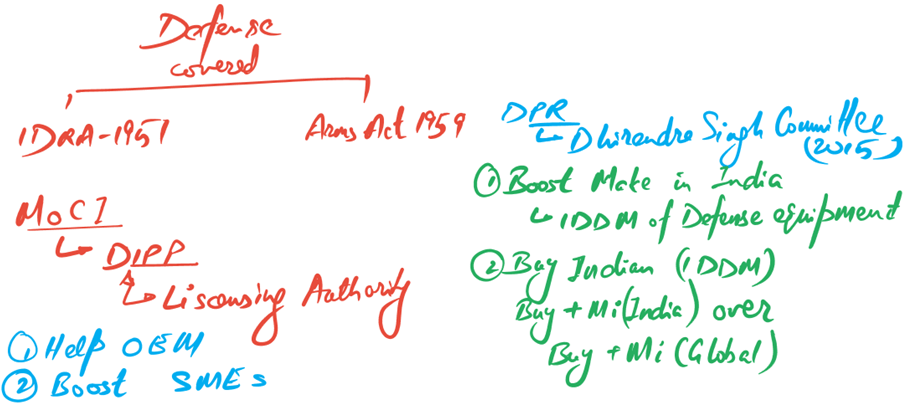 Defense
covered
IDRA-1951
Arms Act 1959
MoCI
DIPP
Liscensing Authority
① Help OEM
② Boost SMEs
DPR
Dhirendra Singh Committee
(2015)
① Boost Make in India
IDDM of Defense equipment
② Buy Indian (IDDM)
Buy + Mi (India) over
Buy + Mi (Global)